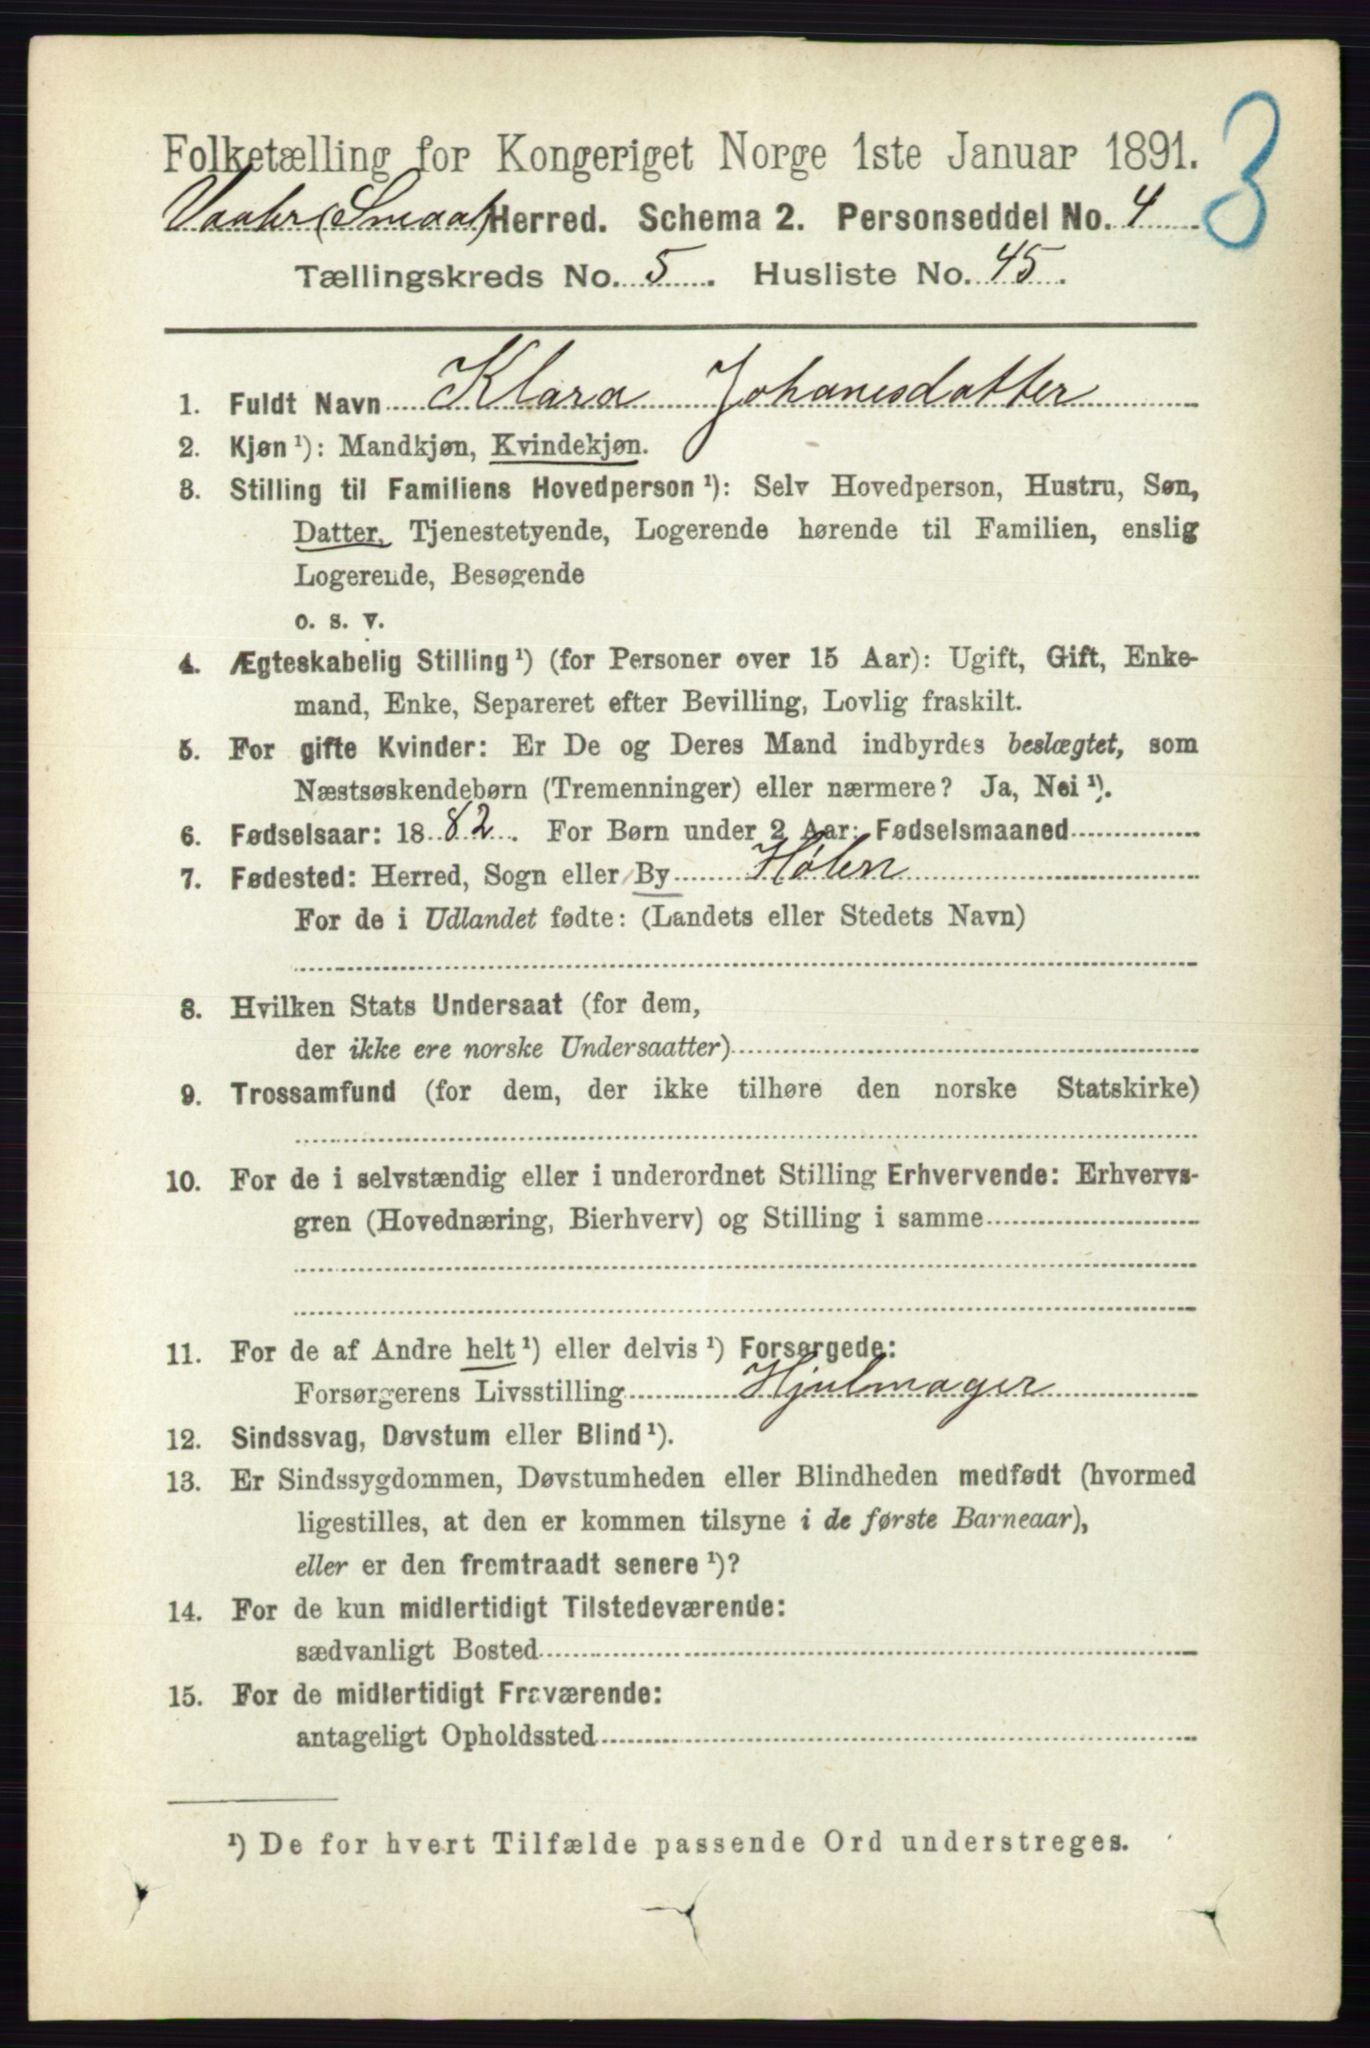 3
Folketælling for Kongeriget Norge 1ste Januar 1891.
Vaaler (Smaal) Herred. Schema 2. Personseddel No. 4
Tællingskreds No. 5. Husliste No. 45.
1. Fuldt Navn Klara Johanesdatter
2. Kjøn ¹): Mandkjøn, Kvindekjøn.
3. Stilling til Familiens Hovedperson ¹): Selv Hovedperson, Hustru, Søn,
Datter, Tjenestetyende, Logerende hørende til Familien, enslig
Logerende, Besøgende
o. s. v.
4. Ægteskabelig Stilling ¹) (for Personer over 15 Aar): Ugift, Gift, Enke-
mand, Enke, Separeret efter Bevilling, Lovlig fraskilt.
5. For gifte Kvinder: Er De og Deres Mand indbyrdes beslægtet, som
Næstsøskendebørn (Tremenninger) eller nærmere? Ja, Nei ¹).
6. Fødselsaar: 1882. For Børn under 2 Aar: Fødselsmaaned
7. Fødested: Herred, Sogn eller By Hølen
For de i Udlandet fødte: (Landets eller Stedets Navn)
8. Hvilken Stats Undersaat (for dem,
der ikke ere norske Undersaatter)
9. Trossamfund (for dem, der ikke tilhøre den norske Statskirke)
10. For de i selvstændig eller i underordnet Stilling Erhvervende: Erhvervs-
gren (Hovednæring, Bierhverv) og Stilling i samme
11. For de af Andre helt ¹) eller delvis ¹) Forsørgede:
Forsørgerens Livsstilling Hjulmager
12. Sindssvag, Døvstum eller Blind ¹).
13. Er Sindssygdommen, Døvstumheden eller Blindheden medfødt (hvormed
ligestilles, at den er kommen tilsyne i de første Barneaar),
eller er den fremtraadt senere ¹)?
14. For de kun midlertidigt Tilstedeværende:
sædvanligt Bosted
15. For de midlertidigt Fraværende:
antageligt Opholdssted
¹) De for hvert Tilfælde passende Ord understreges.